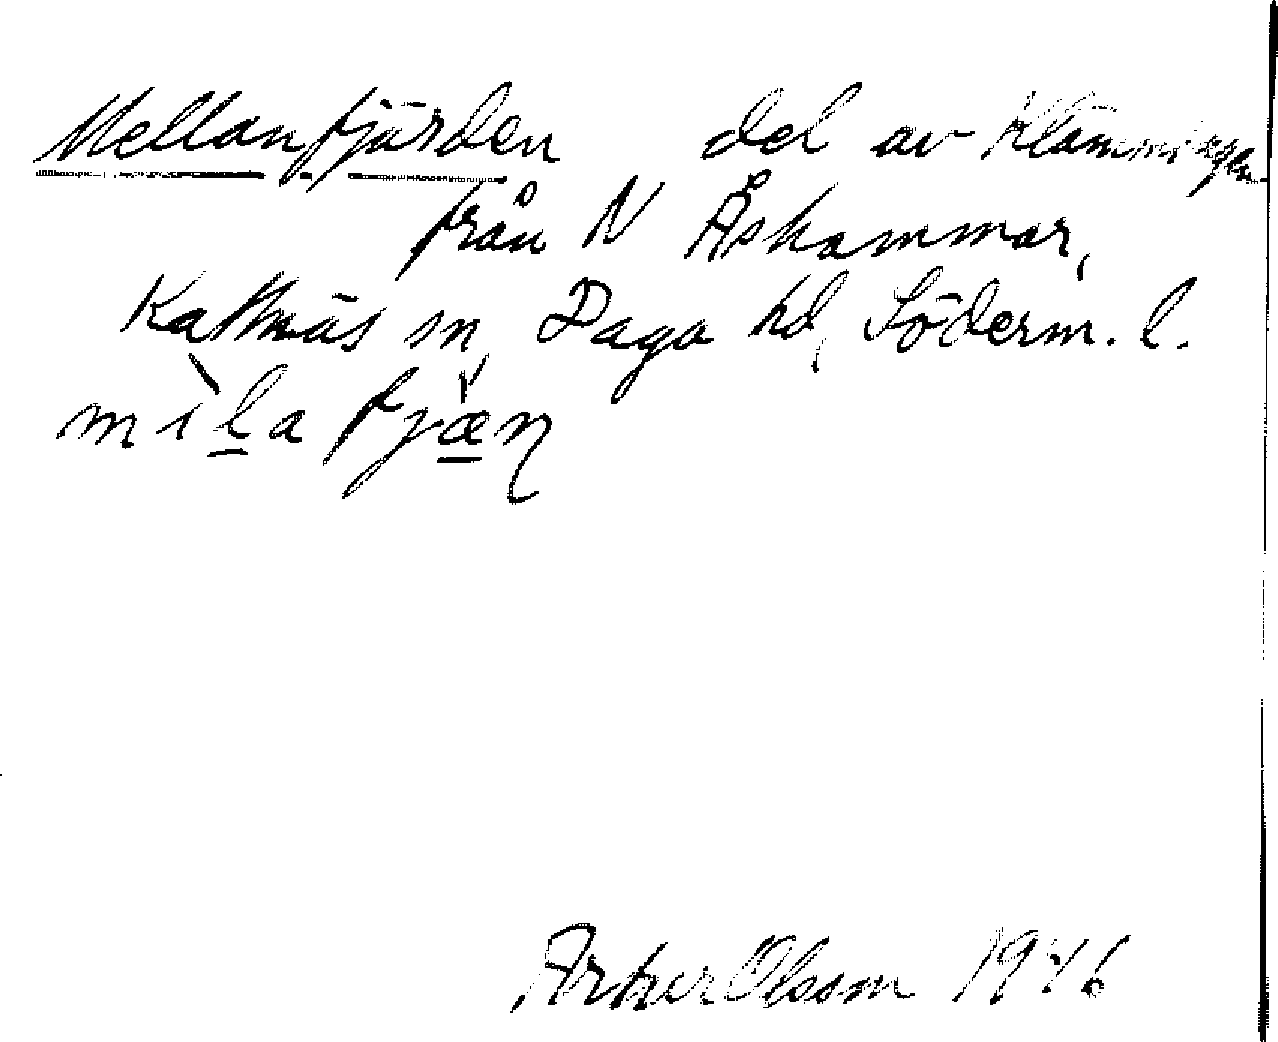 Mellanfjärden del av Klämmingen
från N Åshammar,
Kattnäs sn, Daga hd, Söderm. l.
mìla fjæ̌n
Artur Olsson 1946